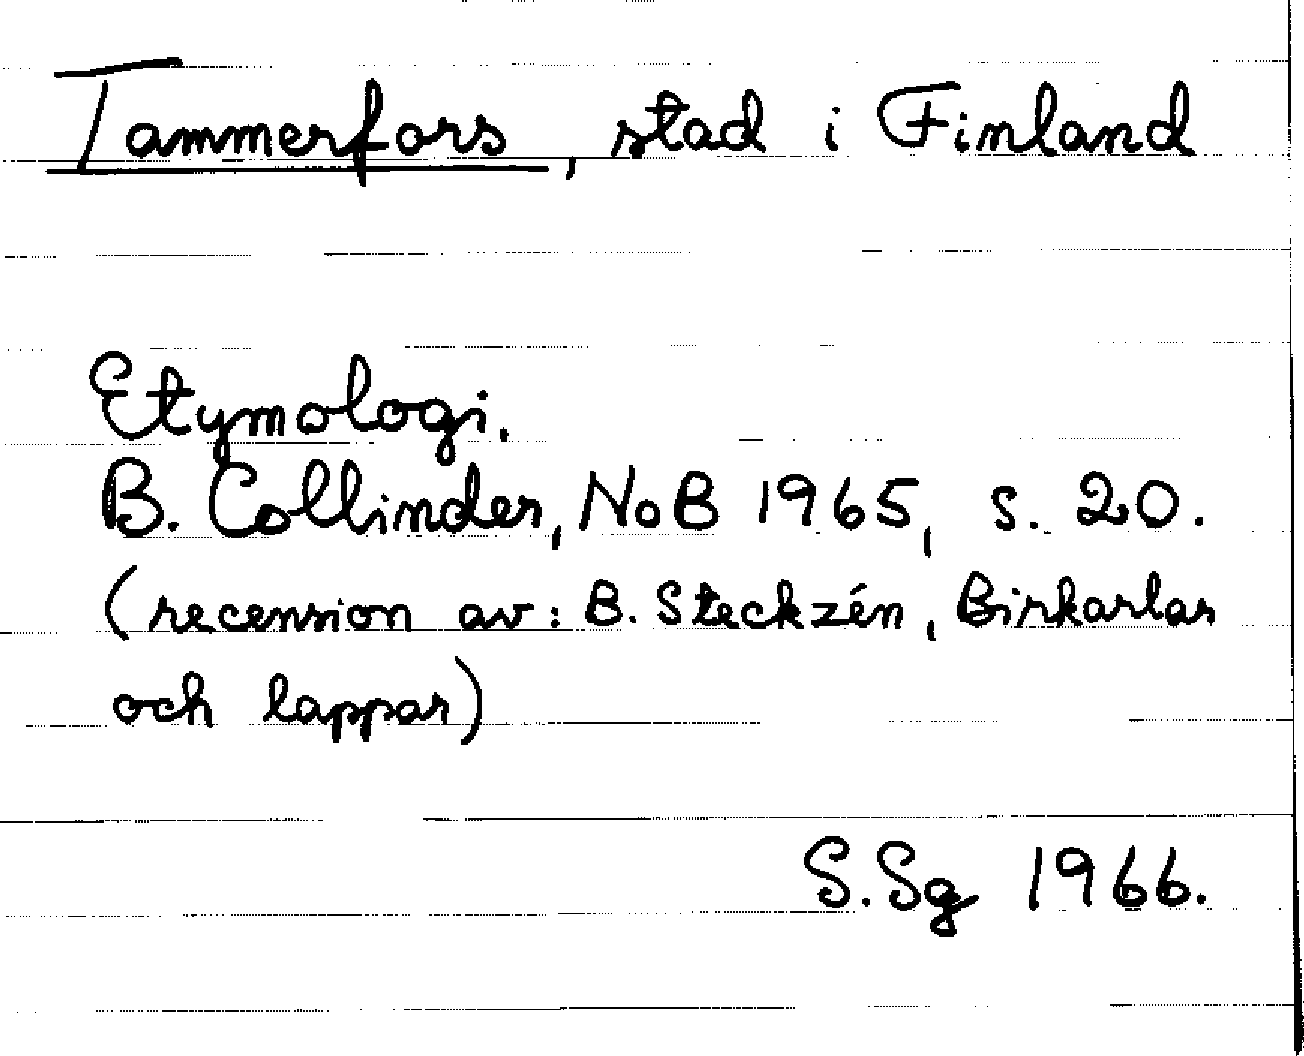 Tammerfors, stad i Finland
Etymologi.
B. Collinder, NoB 1965, s. 20.
(recension av: B. Steckzén, Birkarlar
och lappar)
S.Sg 1966.